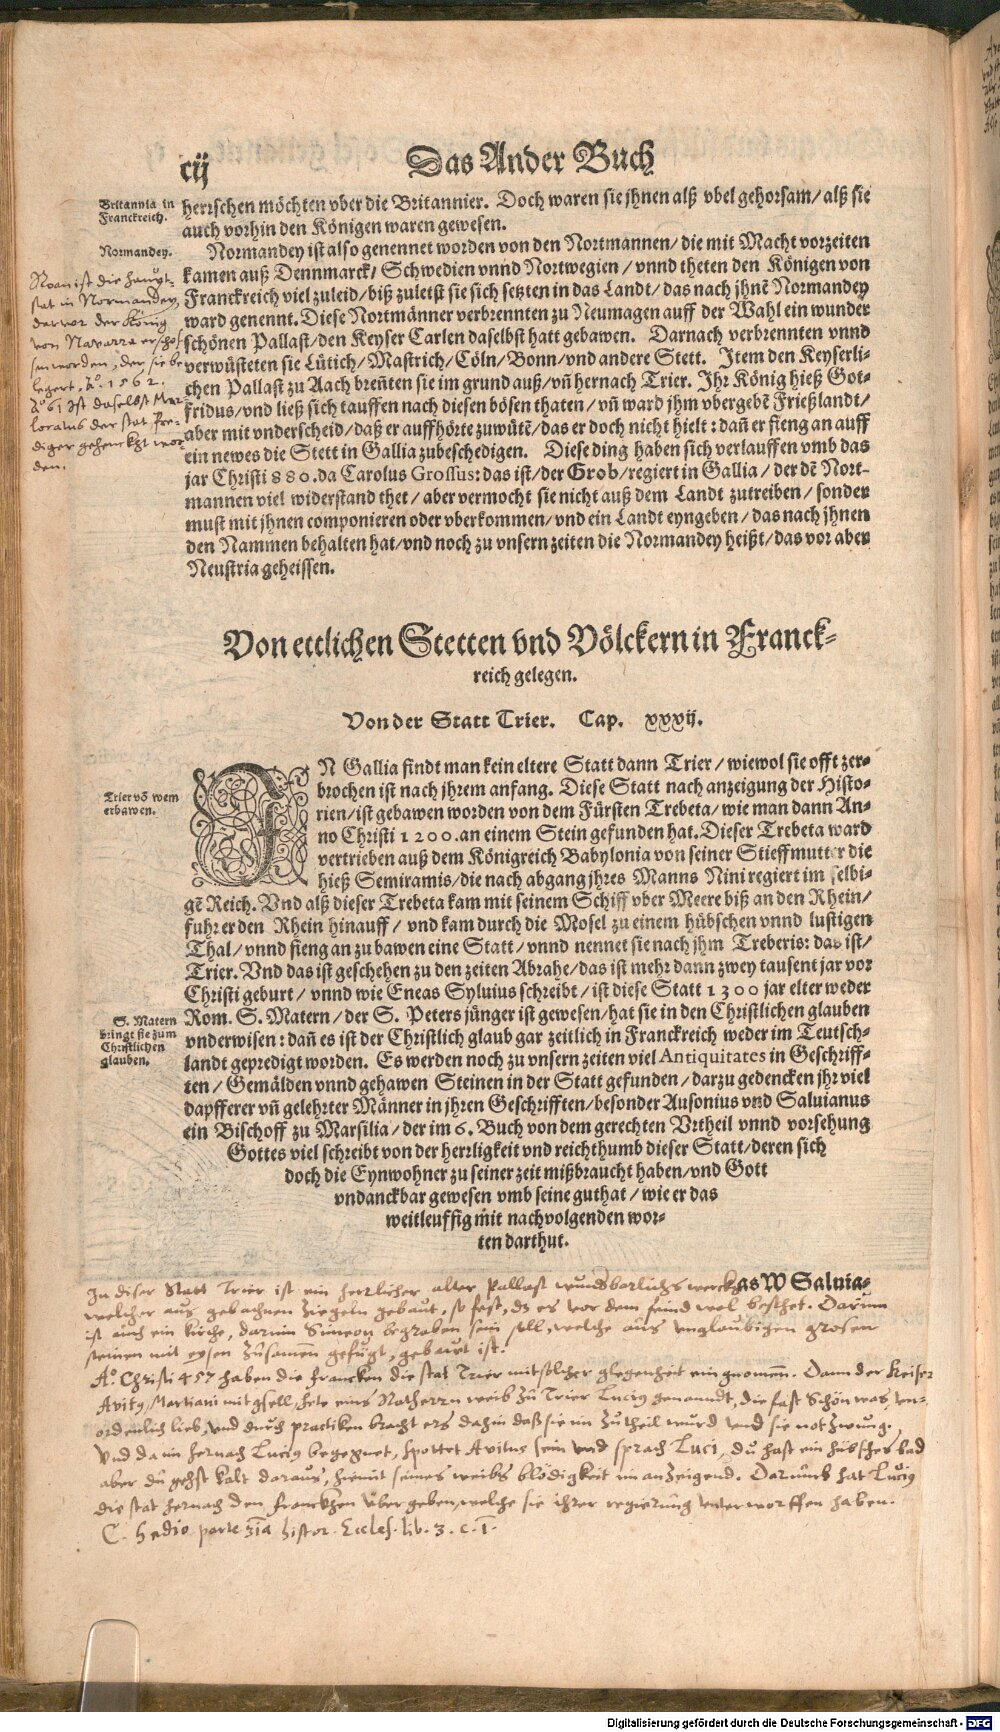 cij
Das Ander Buch
Britannia in
Franckreich.
herrschen möchten vber die Britannier. Doch waren sie jhnen alß vbel gehorsam/ alß sie
auch vorhin den Königen waren gewesen.
Normandey.
Normandey ist also genennet worden von den Nortmannen/ die mit Macht vorzeiten
kamen auß Dennmarck/ Schwedien vnnd Nortwegien/ vnnd theten den Königen von
Franckreich viel zuleid/ biß zuletst sie sich setzten in das Landt/ das nach jhnē Normandey
ward genennt. Diese Nortmänner verbrennten zu Neumagen auff der Wahl ein wunder
schönen Pallast/ den Keyser Carlen daselbst hatt gebawen. Darnach verbrennten vnnd
verwüsteten sie Lütich/ Mastrich/ Cöln/ Bonn/ vnd andere Stett. Item den Keyserli-
chen Pallast zu Aach breñten sie im grund auß/ vñ hernach Trier. Ihr König hieß Got-
fridus/ vnd ließ sich tauffen nach diesen bösen thaten/ vñ ward jhm vbergebē Frießlandt/
aber mit vnderscheid/ daß er auffhörte zuwütē/ das er doch nicht hielt: dañ er fieng an auff
ein newes die Stett in Gallia zubeschedigen. Diese ding haben sich verlauffen vmb das
jar Christi 880. da Carolus Grossus: das ist/ der Grob/ regiert in Gallia/ der dē Nort-
mannen viel widerstand thet/ aber vermocht sie nicht auß dem Landt zutreiben/ sonder
must mit jhnen componieren oder vberkommen/ vnd ein Landt eyngeben/ das nach jhnen
den Nammen behalten hat/ vnd noch zu vnsern zeiten die Normandey heißt/ das vor aber
Neustria geheissen.
Roan ist die haupt-
stat in Normandey,
darvor der König
von Navarra erschos-
sen worden, Der sie be
legert, Aº. 1562.
Aº 61 ist daselbst Mar
loratus der stat Pre-
diger gehenckht wor-
den.
Von ettlichen Stetten vnd Völckern in Franck-
reich gelegen.
Von der Statt Trier. Cap. xxxij.
Trier võ wem
erbawen.
IN Gallia findt man kein eltere Statt dann Trier/ wiewol sie offt zer-
brochen ist nach jhrem anfang. Diese Statt nach anzeigung der Histo-
rien/ ist gebawen worden von dem Fürsten Trebeta/ wie man dann An-
no Christi 1200. an einem Stein gefunden hat. Dieser Trebeta ward
vertrieben auß dem Königreich Babylonia von seiner Stieffmutter die
hieß Semiramis/ die nach abgang jhres Manns Nini regiert im selbi-
gē Reich. Vnd alß dieser Trebeta kam mit seinem Schiff vber Meere biß an den Rhein/
fuhr er den Rhein hinauff/ vnd kam durch die Mosel zu einem hübschen vnnd lustigen
Thal/ vnnd fieng an zu bawen eine Statt/ vnnd nennet sie nach jhm Treberis: das ist/
Trier. Vnd das ist geschehen zu den zeiten Abrahe/ das ist mehr dann zwey tausent jar vor
Christi geburt/ vnnd wie Eneas Syluius schreibt/ ist diese Statt 1300 jar elter weder
S. Matern
bringt sie zum
Christlichen
glauben.
Rom. S. Matern/ der S. Peters jünger ist gewesen/ hat sie in den Christlichen glauben
vnderwisen: dañ es ist der Christlich glaub gar zeitlich in Franckreich weder im Teutsch-
landt gepredigt worden. Es werden noch zu vnsern zeiten viel Antiquitates in Geschriff-
ten/ Gemälden vnnd gehawen Steinen in der Statt gefunden/ darzu gedencken jhr viel
dapfferer vñ gelehrter Männer in jhren Geschrifften/ besonder Ausonius vnd Saluianus
ein Bischoff zu Marsilia/ der im 6. Buch von dem gerechten Vrtheil vnnd vorsehung
Gottes viel schreibt von der herrligkeit vnd reichthumb dieser Statt/ deren sich
doch die Eynwohner zu seiner zeit mißbraucht haben/ vnd Gott
vndanckbar gewesen vmb seine guthat/ wie er das
weitleuffig mit nachvolgenden wor-
ten darthut.
Saluia-
In diser Statt Trier ist ein herrlicher alter Pallast wunderbarlichs wercks
welcher aus gebachnen Ziegeln gebaut, so fest, dz es vor dem feind wol besthet. Darinn
ist auch ein kirche, darinn Simeon begraben sein soll, welche aus unglaubigen grosen
steinen mit eysen zusamen gefügt, gebaut ist.
Aº. Christi 457 haben die francken die stat Trier mit solcher glegenheit eingnomen. Dann der Keiser
Avitus, Martiani mitgsell, hete eins Rathern weib zu Trier Lucius genanndt, die fast Schön was, un-
ordenlich lieb, und durch practiken bracht ers dahin daß sie im zu theil wurd und sie notzwung.
Und da im hernach Lucius begegnet, spottet Avitus sein und sprach Luci, du hast ein hübsches bad
aber du gehst kalt daraus, hiemit seines weibs blödigkeit im anzeigend. Darumb hat Lucius
die stat hernach den franckhen übergeben, welche sie ihrer regierung unterworffen haben.
C. Hedio parte histor. Eccles. lib. 3. c. 1.
Digitalisierung gefördert durch die Deutsche Forschungsgemeinschaft - DFG